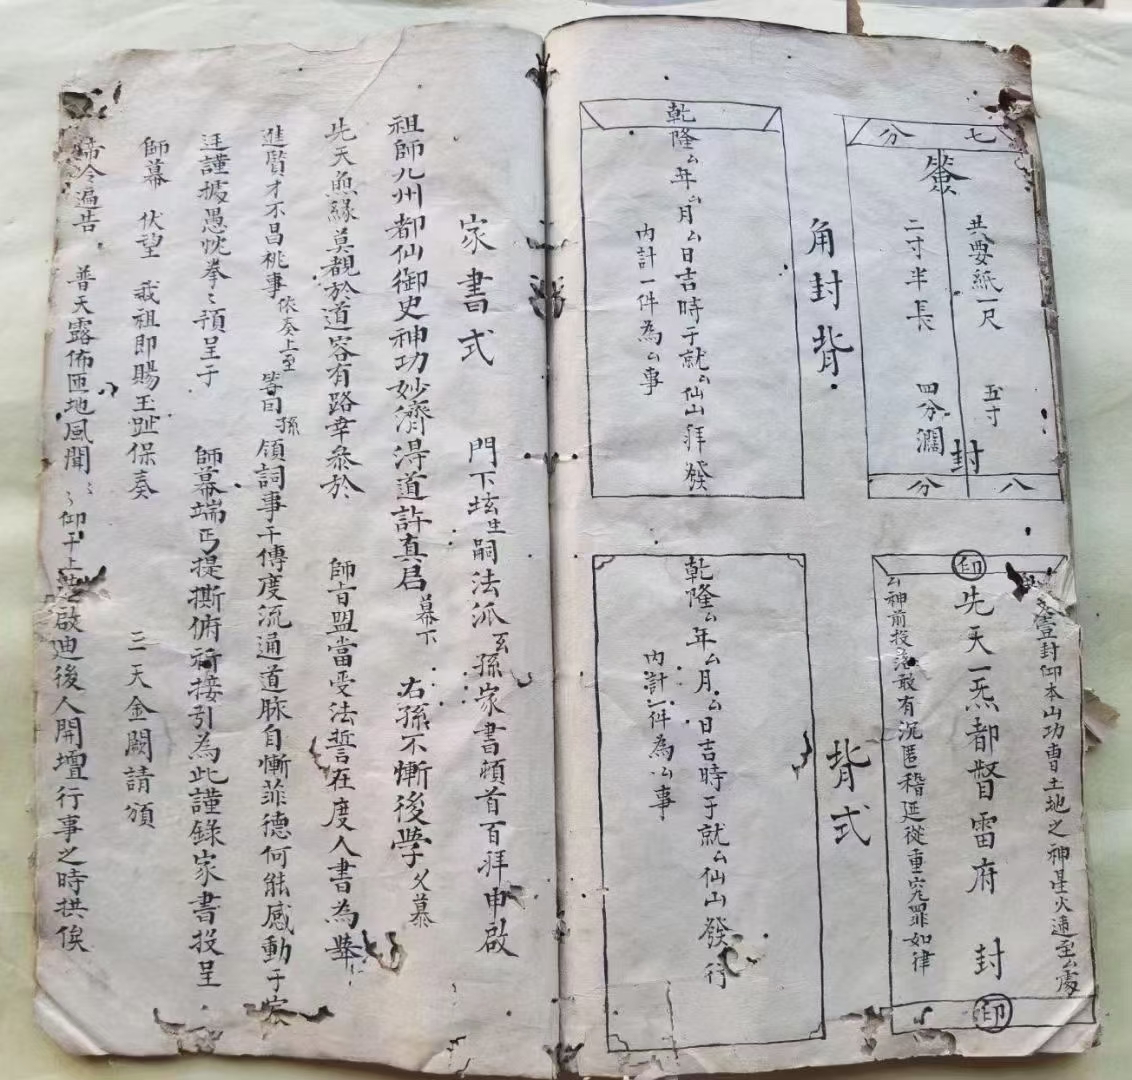 七分
簽
共要紙一尺五寸
二寸半長 四分濶
封
八分
角封背
乾隆厶年厶月厶日吉時于就厶仙山拜發
內計一件為厶事
壹封仰本山功曹土地之神星火速至厶處
印
先天一炁都督雷府 封
印
厶神前投落敢有沉匿稽延從重究罪如律
背式
乾隆厶年厶月厶日吉時于就厶仙山發行
內計一件為厶事
家書式
門下坛生嗣法派玄孫家書頓首百拜申啟
祖師九州都仙御史神功妙濟得道許真君幕下 右孫不慚後學久慕
此天魚緣莫覩於道容有路幸叅於 師旨盟當受法誓在度人書為
進賢才不昌桃事依奏上至 等曰孫領詞事干傳度流通道脉自慚菲德何能感動于
廷謹據愚忱拳〻預呈于 師幕端丐提撕俯祈接引為此謹錄家書投呈
師幕 伏望 我祖即賜玉趾保奏 三天金闕請頒
帝令遍告 普天露佈匝地風聞〻仰干上 啟迪後人開壇行事之時拱俟